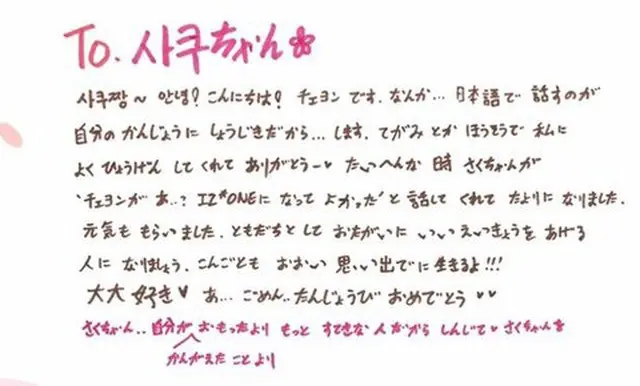 To. 사쿠ちゃん
사쿠짱~ 안녕? こんにちは! チェヨン です. なんか... 日本語で 話すのが
自分の かんじょうに しょうじきだから... します. てがみ とか ほうそうで 私に
よく ひょうげん してくれて ありがとうー♥ たいへんな 時 さくちゃんが
'チェヨンが あ..? IZ*ONEに なって よかった' と 話して くれて たよりに なりました.
元気も もらいました. ともだちと して おたがいに いい えいきょうを あげる
人に なりましょう. こんごとも おおい 思い出でに 生きるよ!!!
大大 好き♥ あ... ごめん.. たんじょうび おめでとう ♥♥
さくちゃん.. 自分が おもったより もっと すてきな 人だから しんじて♥ さくちゃんを
かんがえた ことより